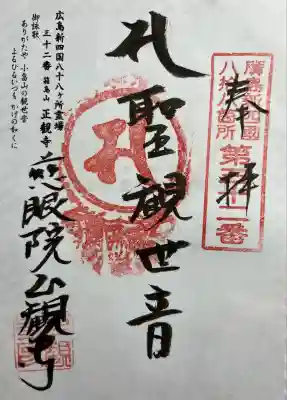 奉拝
廣島新四國
八拾八箇所
第三十二番
聖観世音
広島新四国八十八ヶ所霊場
三十二番 箱島山 正観寺
御詠歌
ありがたや 小島山の観世音
よるひるいつも かげの如くに
慈眼院正観寺